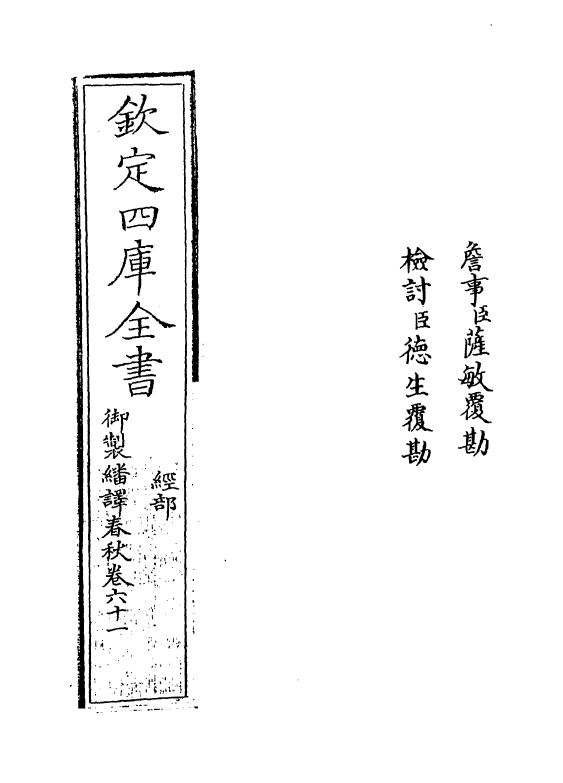 詹事臣薩敏覆勘
檢討臣德生覆勘
欽定四庫全書
經部
御製繙譯春秋卷六十一